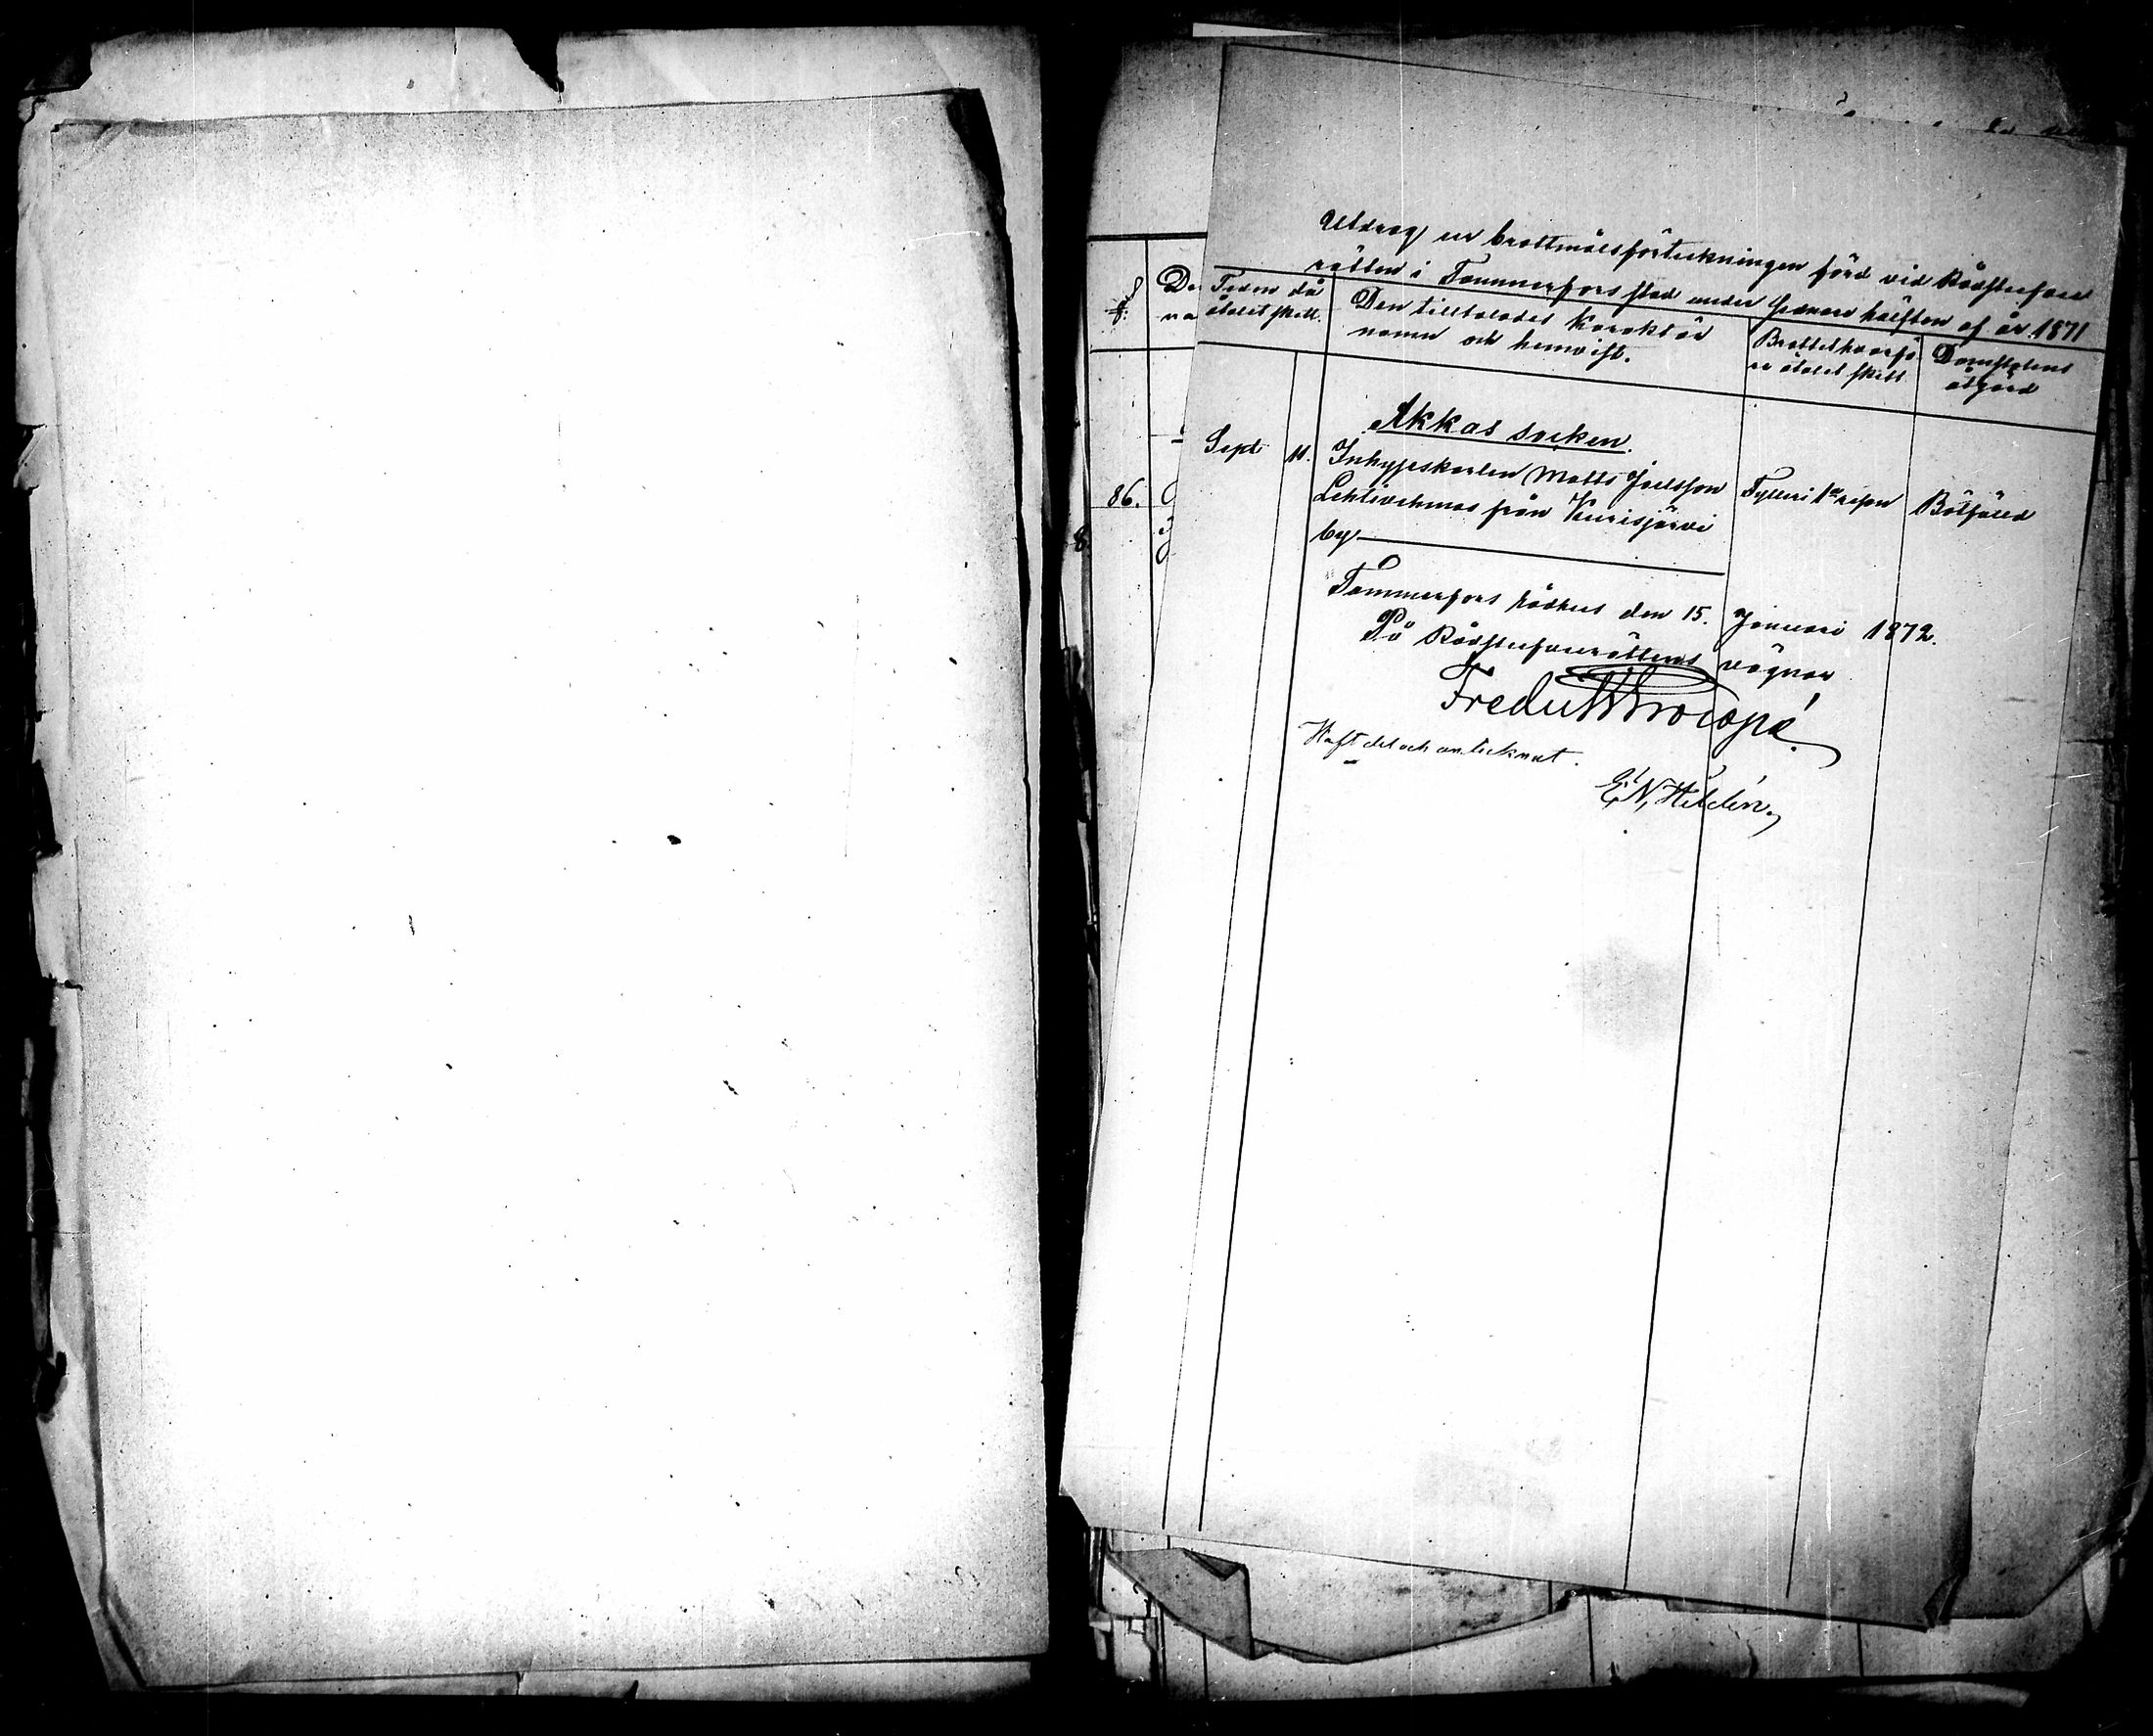 Utdrag ur brottmålsförteckningen förd vid Rådstufvu
rätten i Tammerfors stad under senare hälften af år 1871
Tiden då
åtalet skett.
Den tilltalades karaktär
namn och hemvist.
Brottet hvarfö
re åtalet skett
Domstolens
åtgärd
Akkas socken.
Sept 11. Inhyseskarlen Matts Joelsson Fylleri 1a resan Bötfäld
Lehtivehmas från Kurisjärvi
by
86.
Tammerfors Rådhus den 15. Januari 1872.
På Rådstufvurättens vägnar
Fredr Procopé.
Haft del och antecknat.
E. N. Hildén.